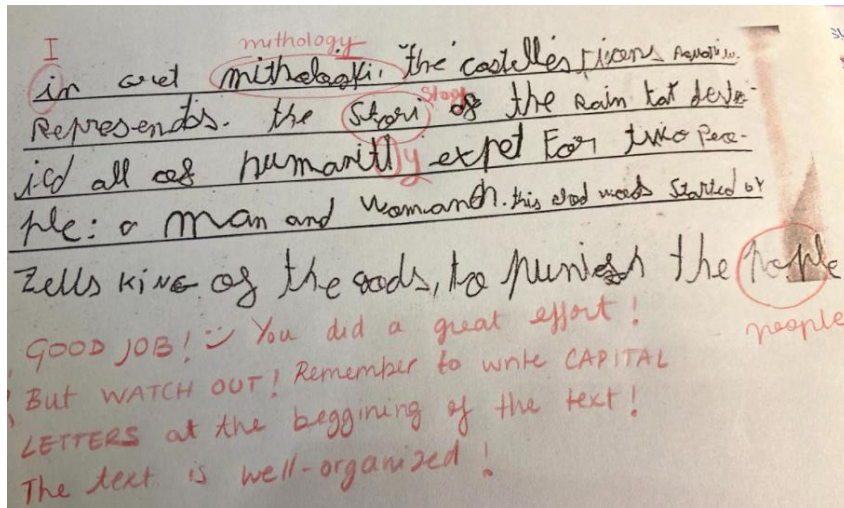 I
muthology
in gret mitholooki, the costelles rixons
story
Represends. the stori of the Rain tat destro-
ied all of humanitl y expet For two Peo-
ple: a man and womanth. this flod was started by
Zells KING of the gods, to punish the pople
people
GOOD JOB! You did a great effort!
But WATCH OUT! Remember to write CAPITAL
LETTERS at the beggining of the text!
The text is well-organized!